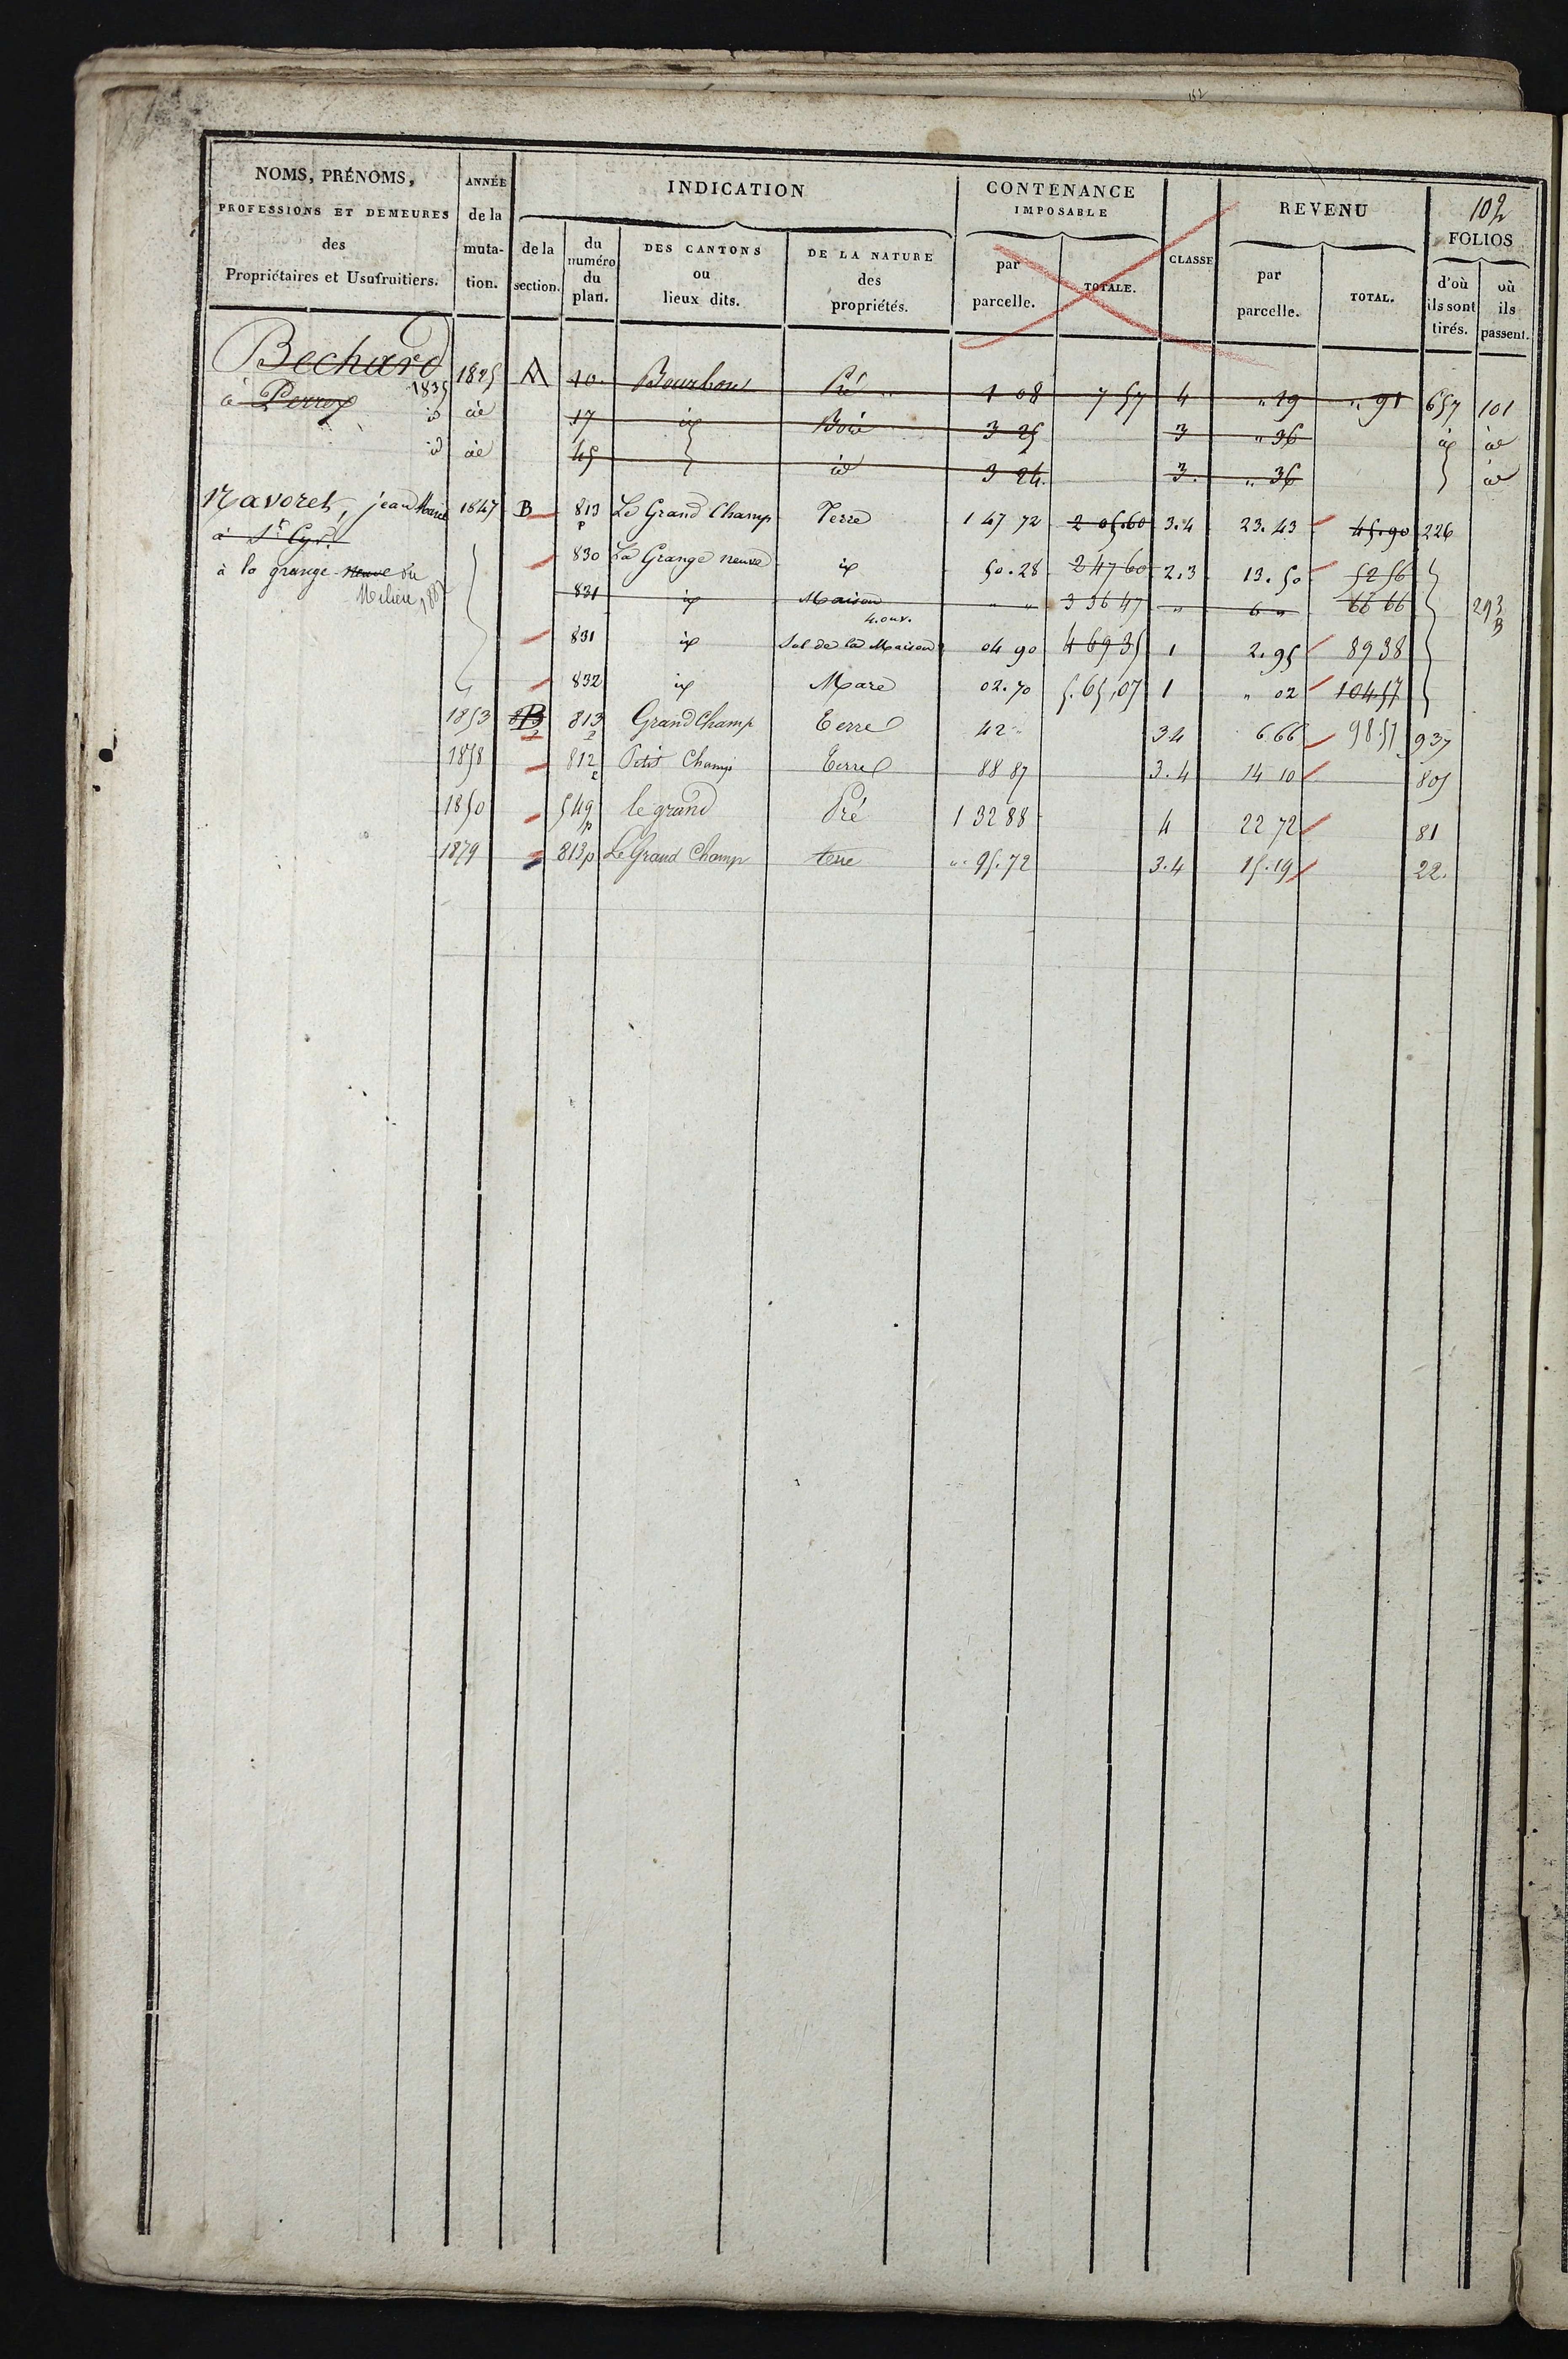 102
NOMS, PRÉNOMS, PROFESSIONS ET DEMEURES des Propriétaires et Usufruitiers.
ANNÉE de la muta- tion.
INDICATION
de la section.
du numéro du plan.
DES CANTONS ou lieux dits.
DE LA NATURE des propriétés.
CONTENANCE IMPOSABLE
par parcelle.
TOTALE.
CLASSE
REVENU
par parcelle.
TOTAL.
FOLIOS
d'où ils sont tirés.
où ils passent.
Bechard 1825 A 10. Bourbou Pré 1 08 7 57 4 " 19 " 91 657 101
à Perrex 1835
id id 17 id Bois 3 25 3 " 36 id id
id id 45 id 3 24. 3. " 36 id
Navoret, jean Marie 1847 B 813 p Le Grand Champ Terre 1 47 72 2 05.60 3.4 23.43 45.90 226
à St Cyr.
à la grange neuve du Milieu, 188
830 La Grange neuve id 50.28 2 47 60 2.3 13.50 52 56
831 id Maison 4.ouv. " " 3 36 47 " 6 " 66 66 293 B
831 id Sol de la Maison 04 90 4 69 35 1 2.95 89 38
832 id Mare 02.70 5.65,07 1 " 02 104.57
1853 B 813 p Grand Champ Terre 42 " 3 4 6.66 98.51 937
1858 812 Petit Champ Terre 88 87 3.4 14 10 805
1850 549 p le grand Pré 1 32 88 4 22 72 81
1879 813p Le Grand Champ terre ". 95.72 3.4 15.19 22.